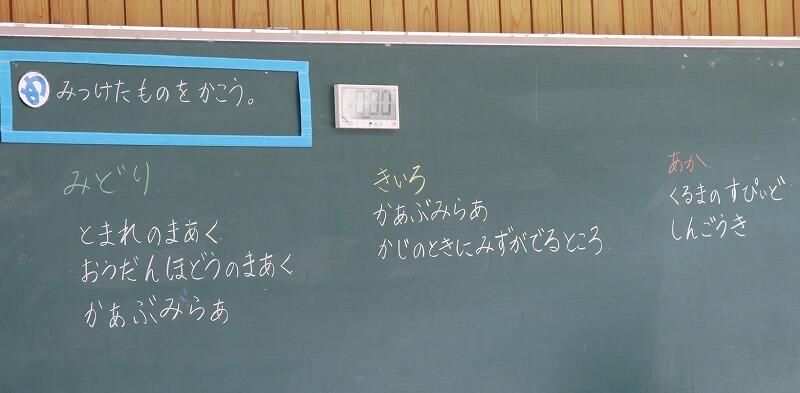 め みつけたものをかこう。
0:00
みどり
とまれのまあく
おうだんほどうのまあく
かあぶみらあ
きいろ
かあぶみらあ
かじのときにみずがでるところ
あか
くるまのすぴいど
しんごうき